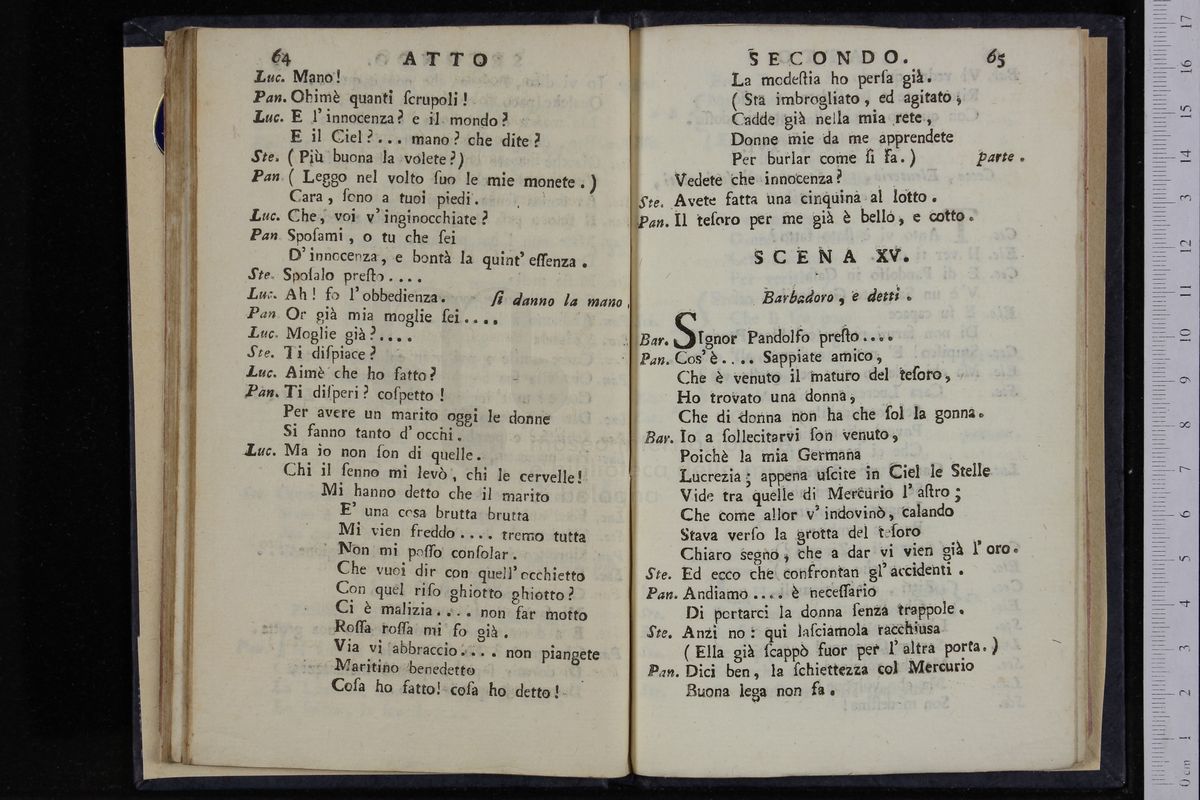 64 ATTO
Luc. Mano!
Pan. Ohimè quanti ſcrupoli!
Luc. E l'innocenza? e il mondo?
E il Ciel?... mano? che dite?
Ste. (Più buona la volete?)
Pan (Leggo nel volto ſuo le mie monete.)
Cara, ſono a tuoi piedi.
Luc. Che, voi v'inginocchiate?
Pan Spoſami, o tu che ſei
D'innocenza, e bontà la quint'eſſenza.
Ste. Spoſalo preſto....
Luc. Ah! fo l'obbedienza. ſi danno la mano.
Pan Or già mia moglie ſei....
Luc. Moglie già?....
Ste. Ti diſpiace?
Luc. Aimè che ho fatto?
Pan. Ti diſperi? coſpetto!
Per avere un marito oggi le donne
Si fanno tanto d'occhi.
Luc. Ma io non ſon di quelle.
Chi il ſenno mi levò, chi le cervelle!
Mi hanno detto che il marito
E' una coſa brutta brutta
Mi vien freddo.... tremo tutta
Non mi poſſo conſolar.
Che vuoi dir con quell'occhietto
Con quel riſo ghiotto ghiotto?
Ci è malizia.... non far motto
Roſſa roſſa mi fo già.
Via vi abbraccio.... non piangete
Maritino benedetto
Coſa ho fatto! coſa ho detto!
SECONDO. 65
La modeſtia ho perſa già.
(Sta imbrogliato, ed agitato,
Cadde già nella mia rete,
Donne mie da me apprendete
Per burlar come ſi fa.) parte.
Vedete che innocenza?
Ste. Avete fatta una cinquina al lotto.
Pan. Il teſoro per me già è bello, e cotto.
SCENA XV.
Barbadoro, e detti.
Bar. SIgnor Pandolfo preſto....
Pan. Cos'è.... Sappiate amico,
Che è venuto il maturo del teſoro,
Ho trovato una donna,
Che di donna non ha che ſol la gonna.
Bar. Io a ſollecitarvi ſon venuto,
Poichè la mia Germana
Lucrezia; appena uſcite in Ciel le Stelle
Vide tra quelle di Mercurio l'aſtro;
Che come allor v'indovinò, calando
Stava verſo la grotta del teſoro
Chiaro segno, che a dar vi vien già l'oro.
Ste. Ed ecco che confrontan gl'accidenti.
Pan. Andiamo.... è neceſſario
Di portarci la donna ſenza trappole.
Ste. Anzi no: qui laſciamola racchiusa
(Ella già ſcappò fuor per l'altra porta.)
Pan. Dici ben, la ſchiettezza col Mercurio
Buona lega non fa.
17
16
15
14
13
12
11
10
9
8
7
6
5
4
3
2
1
0 cm